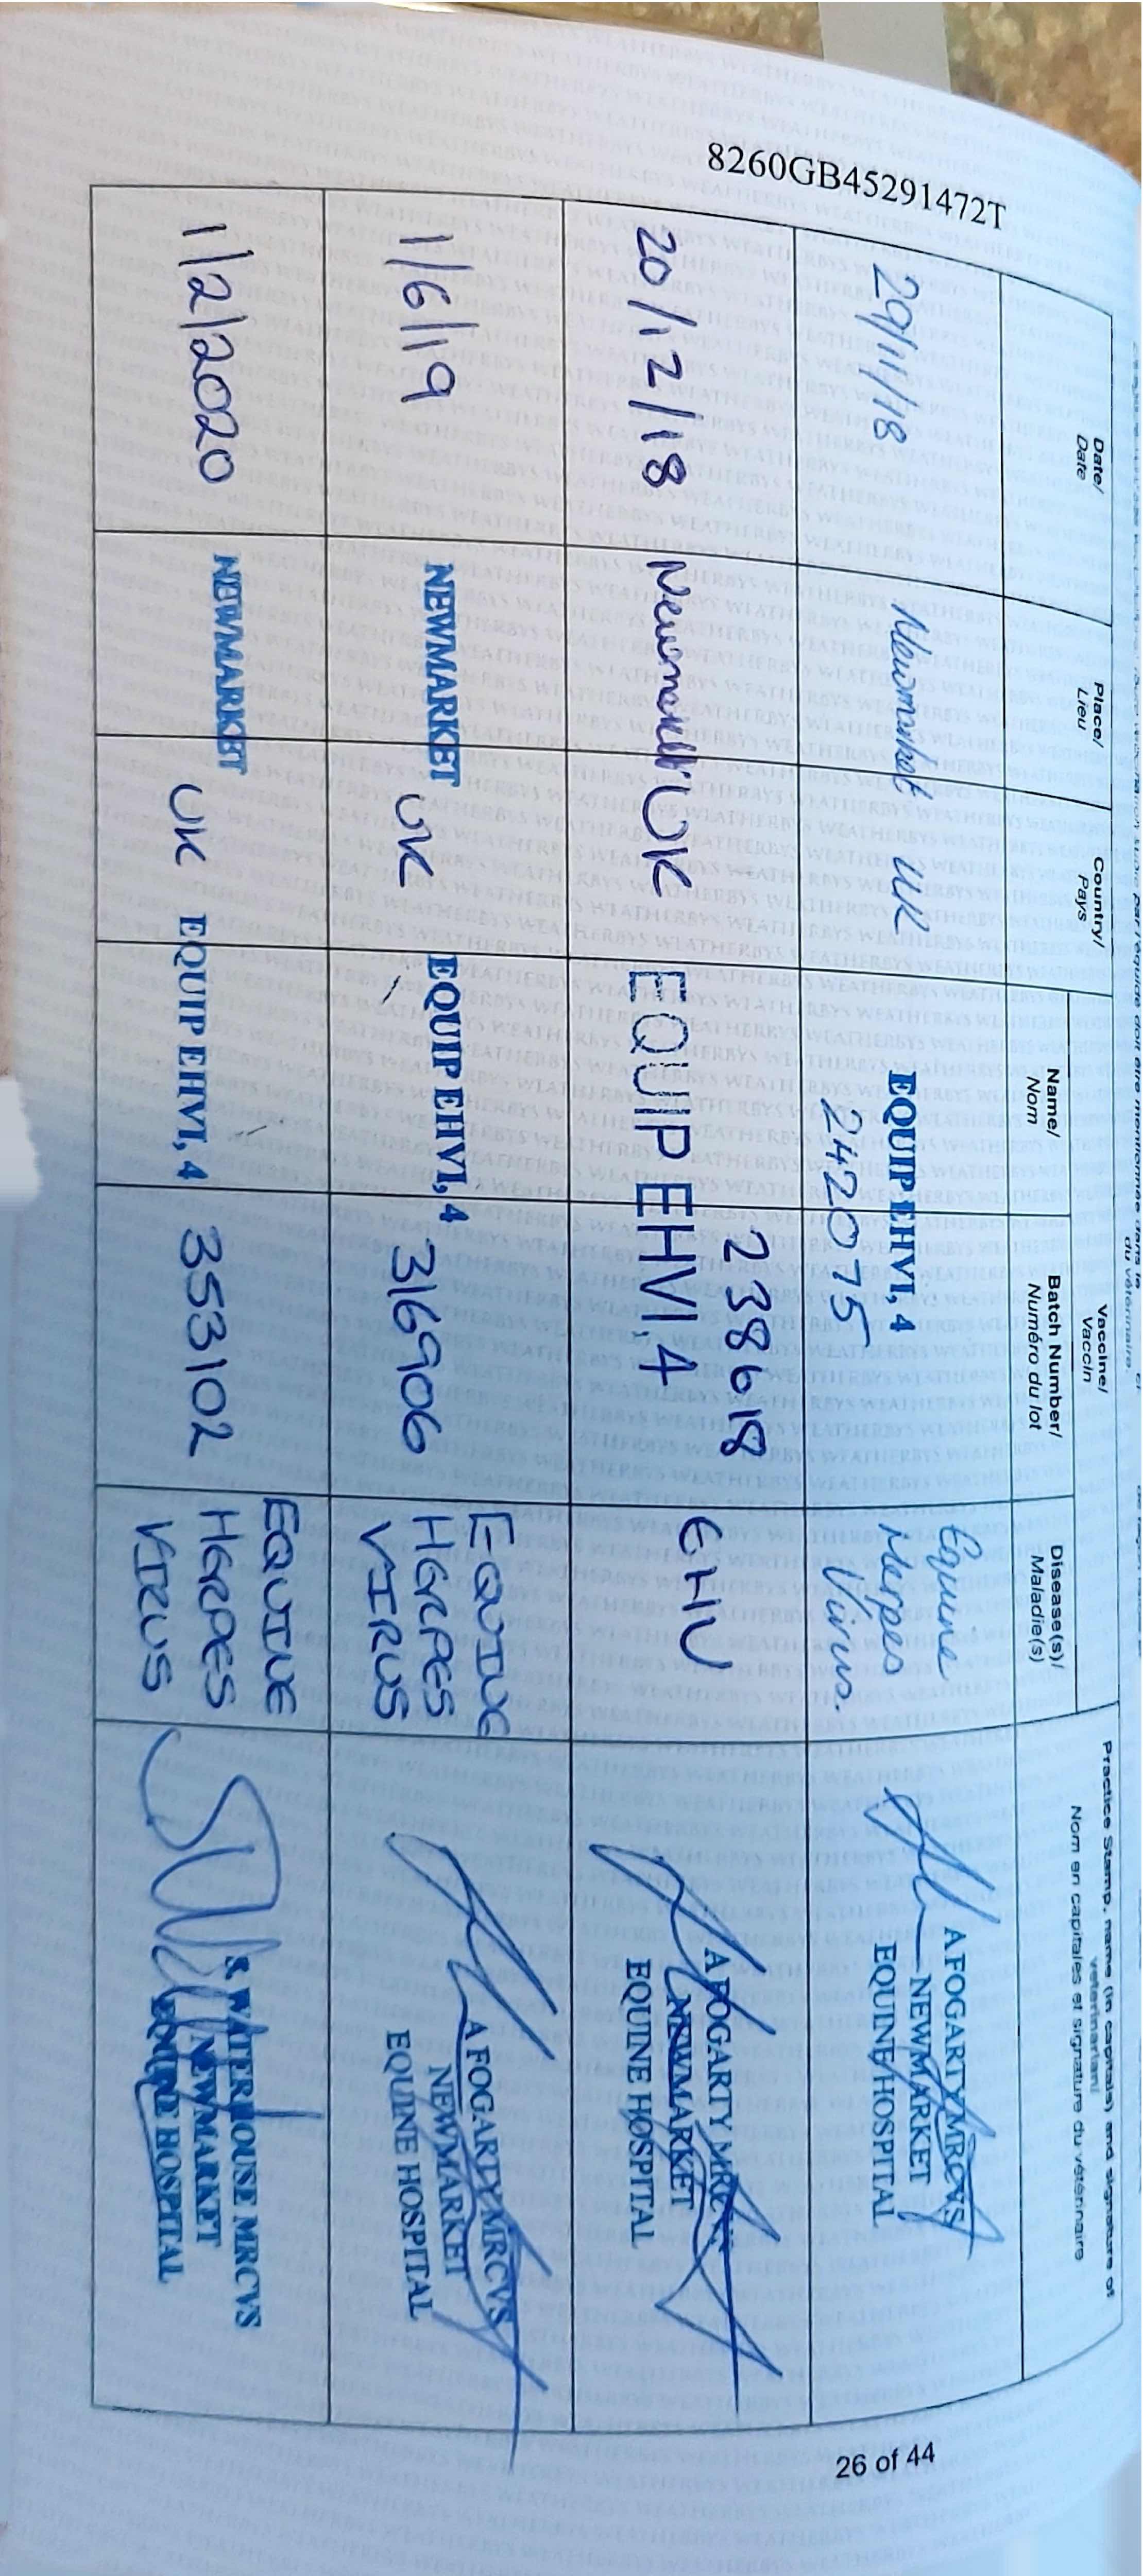 8260GB45291472T
Date/
Date
Place/
Lieu
Country/
Pays
Vaccine/
Vaccin
Name/
Nom
Batch Number/
Numéro du lot
Disease(s)/
Maladie(s)
Practice Stamp, name (in capitals) and signature of
veterinarian/
Nom en capitales et signature du vétérinaire
du vétérinaire.
29/11/18
Newmarket
UK
EQUIP EHV1,4
242075
Equine
Herpes
Virus.
A FOGARTY MRCVS
NEWMARKET
EQUINE HOSPITAL
20/12/18
Newmarket
UK
EQUIP EHV1,4
238618
EHV
A FOGARTY MRCVS
NEWMARKET
EQUINE HOSPITAL
1/6/19
NEWMARKET
UK
EQUIP EHV1,4
316906
EQUINE
HERPES
VIRUS
A FOGARTY MRCVS
NEWMARKET
EQUINE HOSPITAL
1/2/2020
NEWMARKET
UK
EQUIP EHV1,4
353102
EQUINE
HERPES
VIRUS
WATERHOUSE MRCVS
NEWMARKET
EQUINE HOSPITAL
26 of 44
WEATHERBYS